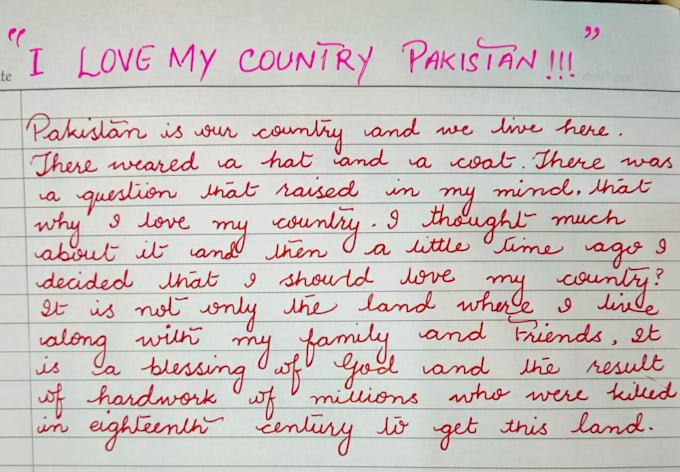 te
"I LOVE MY COUNTRY PAKISTAN !!!"
Pakistan is our country and we live here.
There weared a hat and a coat. There was
a question that raised in my mind, that
why I love my country. I thought much
about it and then a little time ago I
decided that I should love my country?
It is not only the land where I live
along with my family and Friends, It
is a blessing of God and the result
of hardwork of millions who were killed
in eighteenth century to get this land.